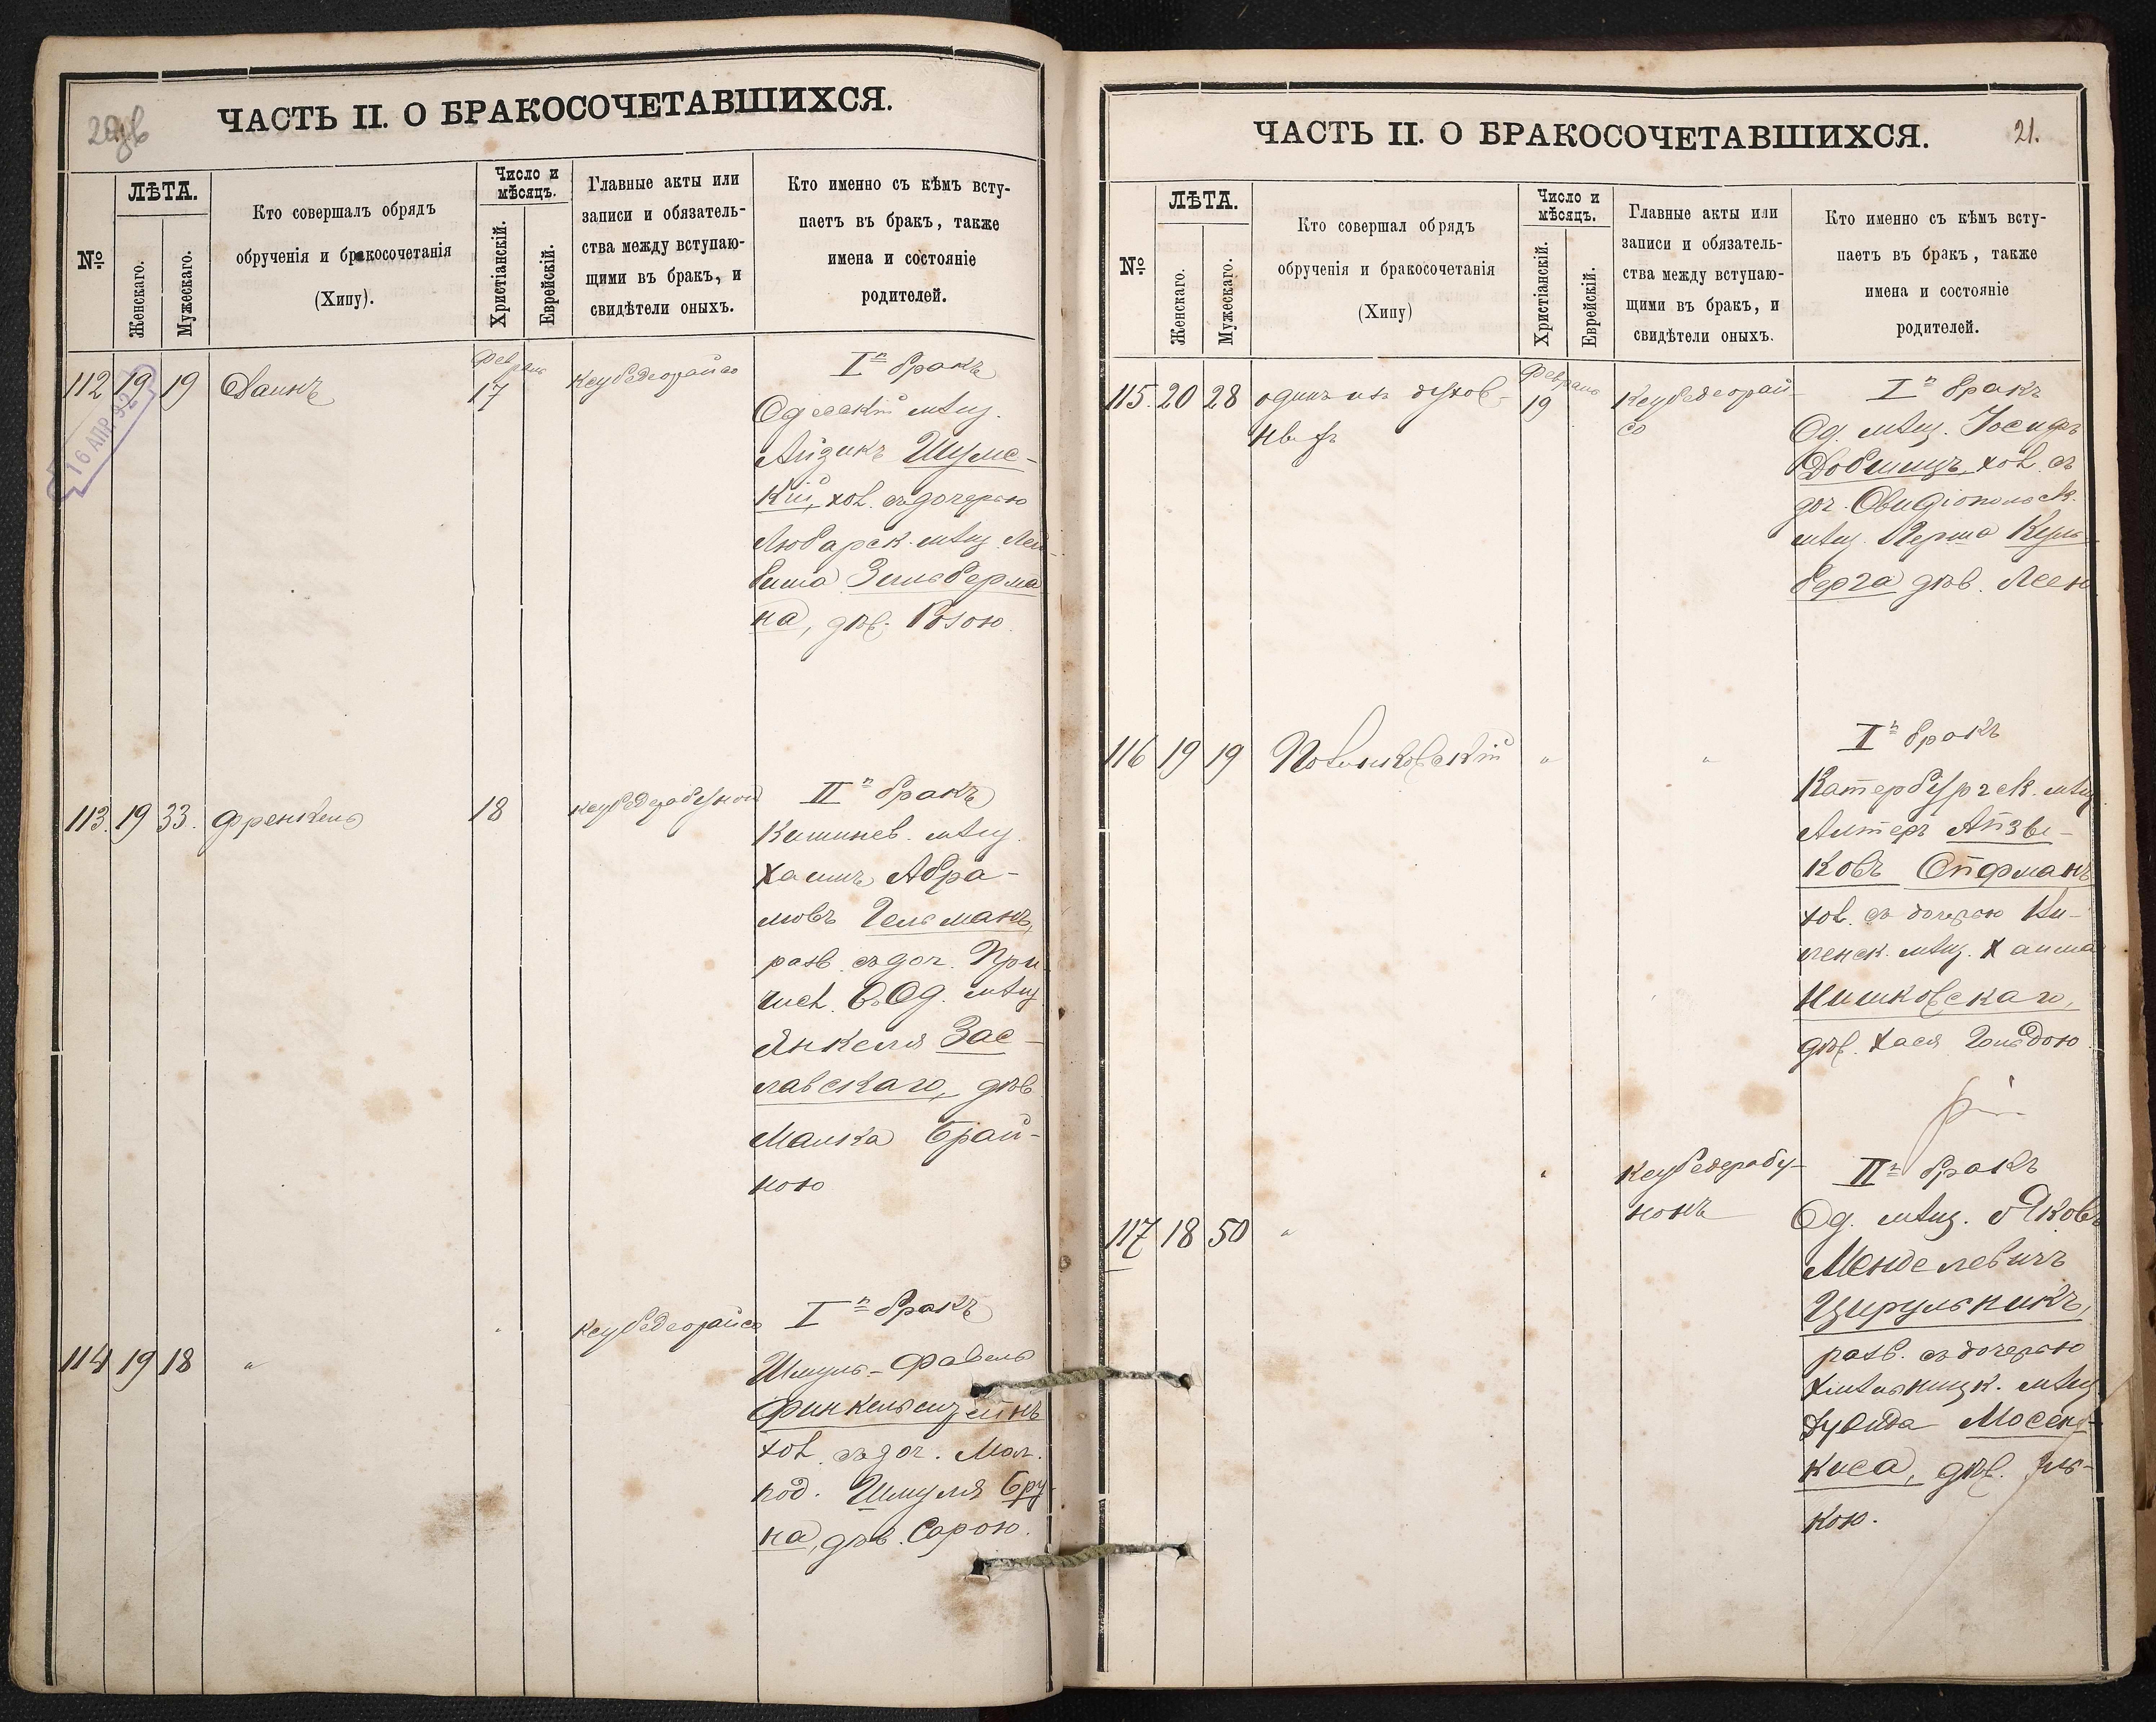 ЧАСТЬ II. О БРАКОСОЧЕТАВШИХСЯ.
№
ЛѢТА.
Женскаго.
Мужескаго.
Кто совершалъ обрядъ
обрученія и бракосочетанія
(Хипу).
Число и
мѣсяцъ.
Христіанскій.
Еврейскій.
Главные акты или
записи и обязатель-
ства между вступаю-
щими въ бракъ, и
свидѣтели оныхъ.
Кто именно съ кѣмъ всту-
паетъ въ бракъ, также
имена и состояніе
родителей.
16 АПР 92
112 19 19
Февраль
17
Кеубедеорайсо
Iй бракъ
Одесскій мѣщ.
Айзикъ Шумс-
кій, хол. съ дочерью
Любарск. мѣщ. Лей-
биша Зильберма
на, дѣв. Розою.
113. 19 33. Френкель
18
IIй бракъ
Кишинев. мѣщ.
Хаимъ Абра-
мовъ Гельманъ,
разв. съ доч. При
числ. въ Од. мѣщ
Янкеля Зас-
лавскаго, дѣв.
Малка Брай-
ною
114 19 18 "
Кеубедеорайсо
Iй бракъ
Шмуль-Файвель
Финкельштейнъ
хол. съ доч. Мог.
под. Шмуля Бру
на, дѣв. Сарою.
ЧАСТЬ II. О БРАКОСОЧЕТАВШИХСЯ.
21.
№
ЛѢТА.
Женскаго.
Мужескаго.
Кто совершал обрядъ
обрученія и бракосочетанія
(Хипу)
Число и
мѣсяцъ.
Христіанскій.
Еврейскій.
Главные акты или
записи и обязатель-
ства между вступаю-
щими въ бракъ, и
свидѣтели оныхъ.
Кто именно съ кѣмъ всту-
паетъ въ бракъ, также
имена и состояніе
родителей.
115. 20 28 одинъ изъ
Февраль
19
Кеубедеорай-
со
Iй бракъ
Од. мѣщ. Іосифъ
хол. съ
доч. Овидіопольск.
мѣщ. Герша Куль-
берга дѣв. Леею
116 19 19
"
"
Iй бракъ
Катербургск. мѣщ
Алтеръ Айзи-
ковъ Ойфманъ
хол. съ дочерью
мѣщ. Хаима
Нишковскаго,
дѣв. Хася Гольдою
117 18 50 "
"
Кеубедерабу-
нонъ
IIй бракъ
Од. мѣщ. Яковъ
Менделевичъ
Цирульникъ,
разв. съ дочерью
Хмѣльницк. мѣщ
Дувида
киса, дѣв.
кою.